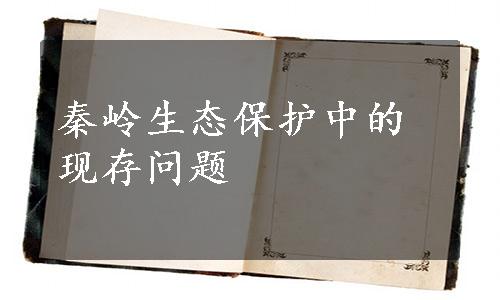 秦岭生态保护中的
现存问题